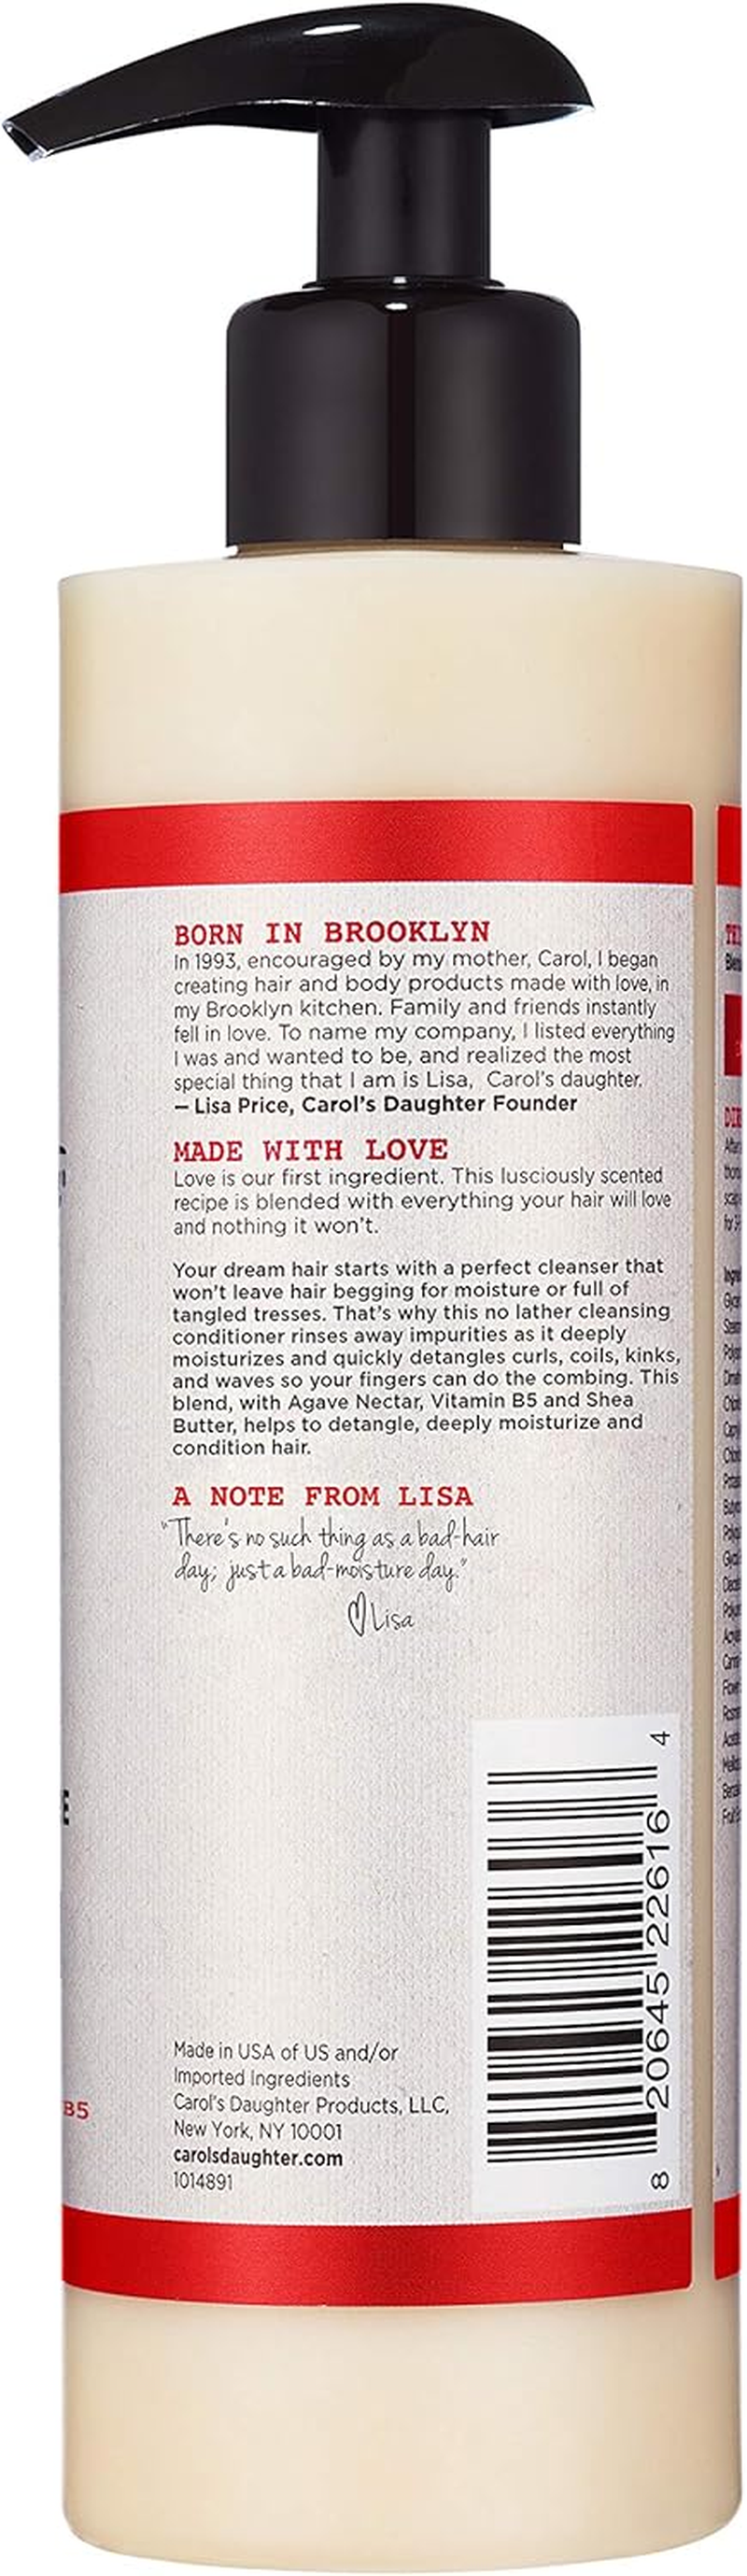 BORN IN BROOKLYN
In 1993, encouraged by my mother, Carol, I began
creating hair and body products made with love, in
my Brooklyn kitchen. Family and friends instantly
fell in love. To name my company, I listed everything
I was and wanted to be, and realized the most
special thing that I am is Lisa, Carol's daughter.
— Lisa Price, Carol's Daughter Founder
MADE WITH LOVE
Love is our first ingredient. This lusciously scented
recipe is blended with everything your hair will love
and nothing it won't.
Your dream hair starts with a perfect cleanser that
won't leave hair begging for moisture or full of
tangled tresses. That's why this no lather cleansing
conditioner rinses away impurities as it deeply
moisturizes and quickly detangles curls, coils, kinks,
and waves so your fingers can do the combing. This
blend, with Agave Nectar, Vitamin B5 and Shea
Butter, helps to detangle, deeply moisturize and
condition hair.
A NOTE FROM LISA
"There's no such thing as a bad-hair
day; just a bad-moisture day."
Lisa
8 20645 22616 4
Made in USA of US and/or
Imported Ingredients
Carol's Daughter Products, LLC,
New York, NY 10001
carolsdaughter.com
1014891
B5